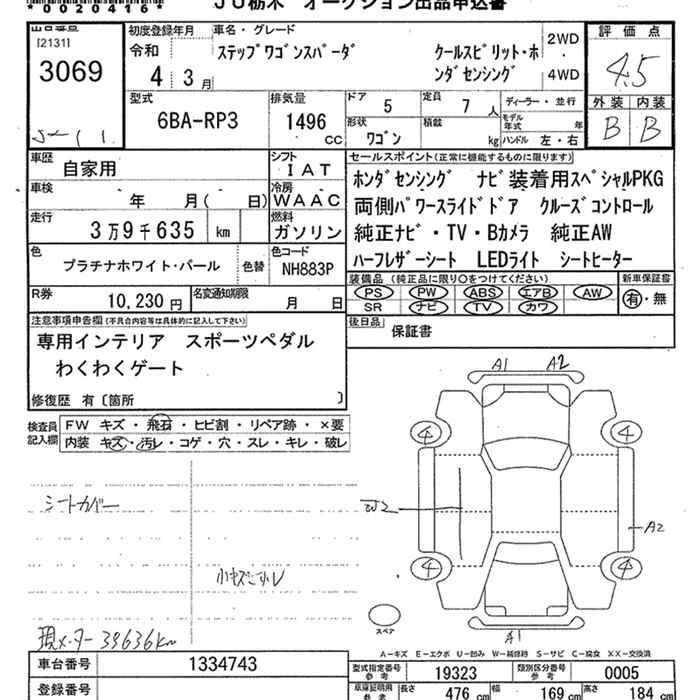 *0020416*
JU栃木 オークション出品申込書
出品番号
[2131]
3069
初度登録年月
令和
4 3月
車名・グレード
ステップワゴンスパーダ
クールスピリット・ホンダセンシング
2WD
4WD
評価点
4.5
外装 内装
B B
型式
6BA-RP3
排気量
1496
CC
ドア
5
定員
7
人
形状
ワゴン
積載
kg
ディーラー・並行
モデル年式 年
ハンドル 左・右
車歴
自家用
シフト
IAT
車検
年 月( 日)
冷房
WAAC
走行
3万9千635 km
燃料
ガソリン
色
プラチナホワイト・パール
色替
色コード
NH883P
R券
10,230円
名変通知期限
月 日
セールスポイント(正常に機能するものに限ります)
ホンダセンシング ナビ装着用スペシャルPKG
両側パワースライドドア クルーズコントロール
純正ナビ・TV・Bカメラ 純正AW
ハーフレザーシート LEDライト シートヒーター
装備品 (純正品に限り○をつけてください)
PS PW ABS エアB AW
SR ナビ TV カワ
新車保証書
有・無
後日品
保証書
注意事項申告欄(不具合内容等は具体的に記入して下さい)
専用インテリア スポーツペダル
わくわくゲート
修復歴 有〔箇所 〕
検査員記入欄
FW キズ・飛石・ヒビ割・リペア跡・×要
内装 キズ・汚レ・コゲ・穴・スレ・キレ・破レ
シートカバー
現メーター 39636km
A1 A2
4 4
W2
A2
4 4
A1
スペア
A-キズ E-エクボ U-凹み W-補修跡 S-サビ C-腐食 XX-交換済
車台番号
1334743
登録番号
型式指定番号
参考
19323
類別区分番号
参考
0005
車庫証明用
参考
長さ
476 cm
幅
169 cm
高さ
184 cm